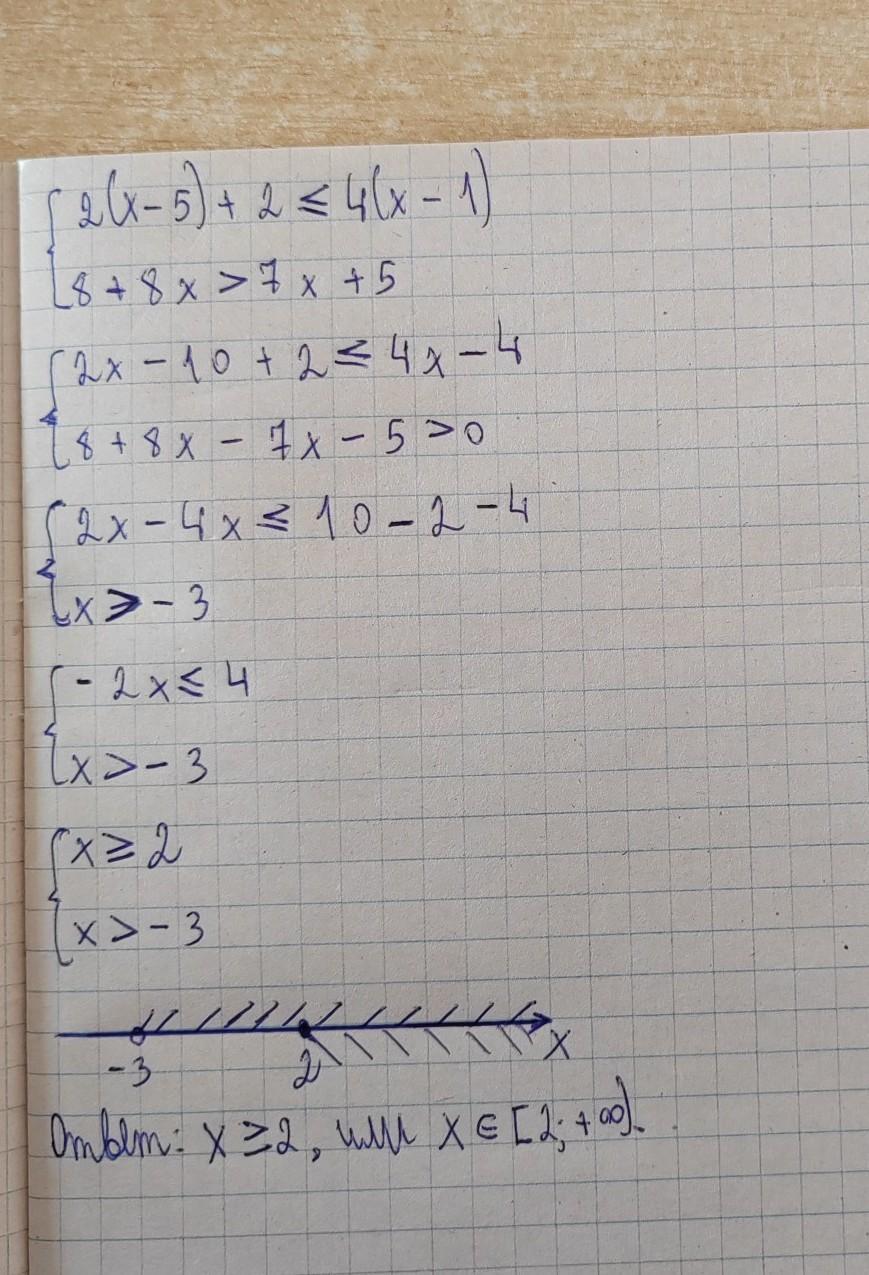 2(x-5)+2≤4(x-1)
8+8x>7x+5
2x-10+2≤4x-4
8+8x-7x-5>0
2x-4x≤10-2-4
x>-3
-2x≤4
x>-3
x≥2
x>-3
-3 2 x
Ответ: x≥2, или x∈[2;+∞).